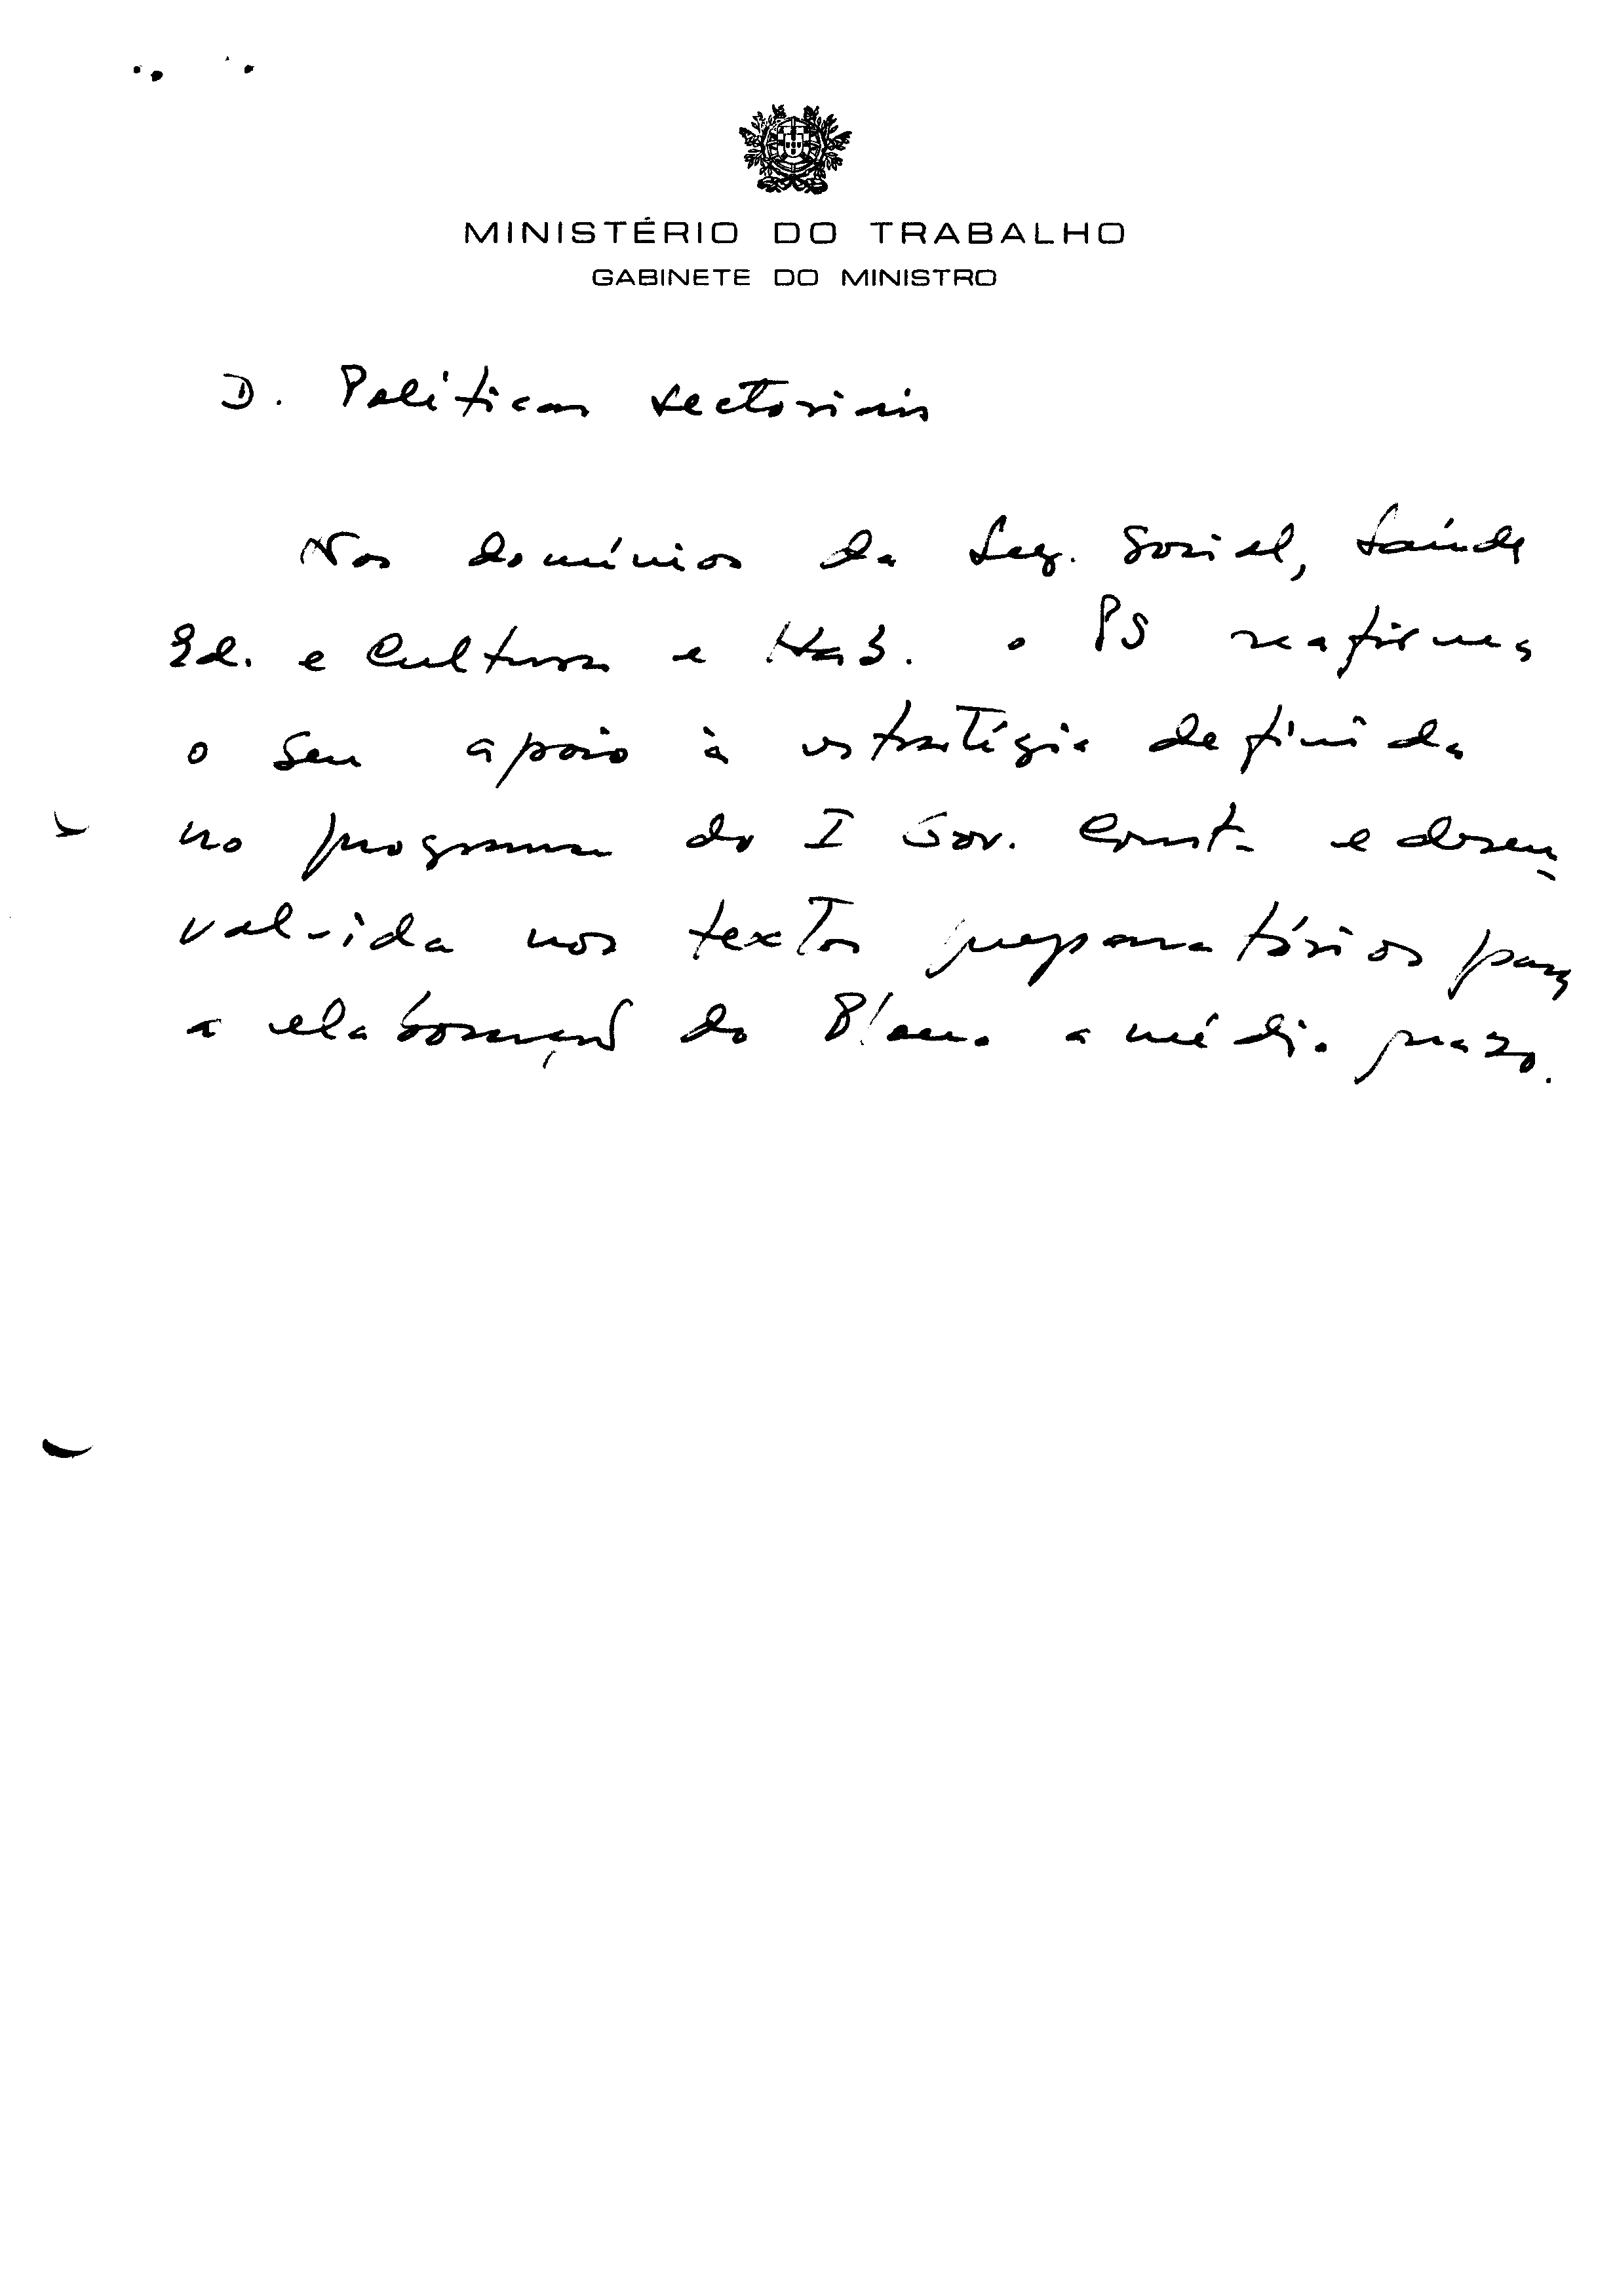 MINISTÉRIO DO TRABALHO
GABINETE DO MINISTRO
D. Políticas sectoriais
Nos domínios da Seg. Social, Saúde
Ed. e Cultura e Hab. o PS reafirma
o seu apoio à estratégia definida
no programa do I Gov. Const. e desen-
volvida nos textos preparatórios para
a elaboração do Plano a médio prazo.